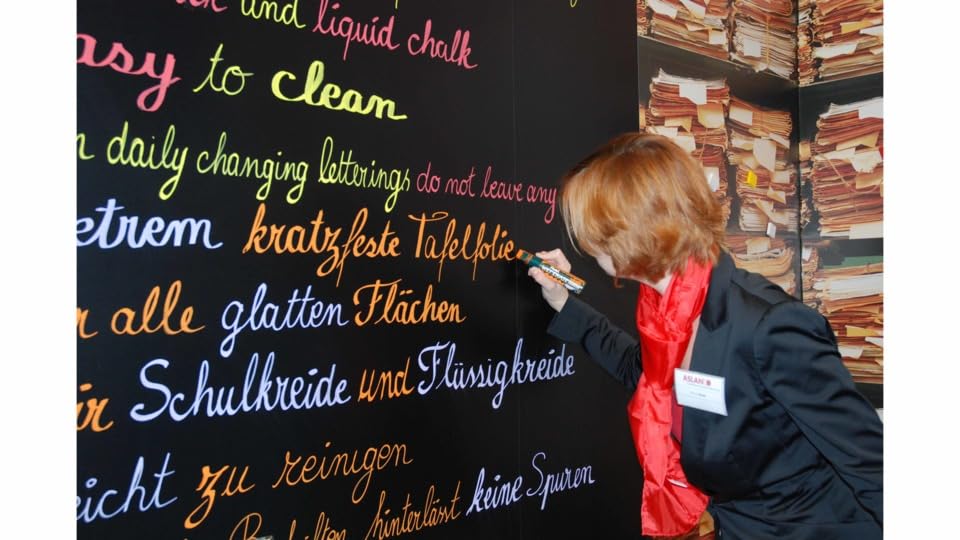 and liquid chalk
easy to clean
daily changing letterings do not leave any
etrem kratzfeste Tafelfolie
r alle glatten Flächen
ür Schulkreide und Flüssigkreide
eicht zu reinigen
hinterlässt keine Spuren
ASLAN